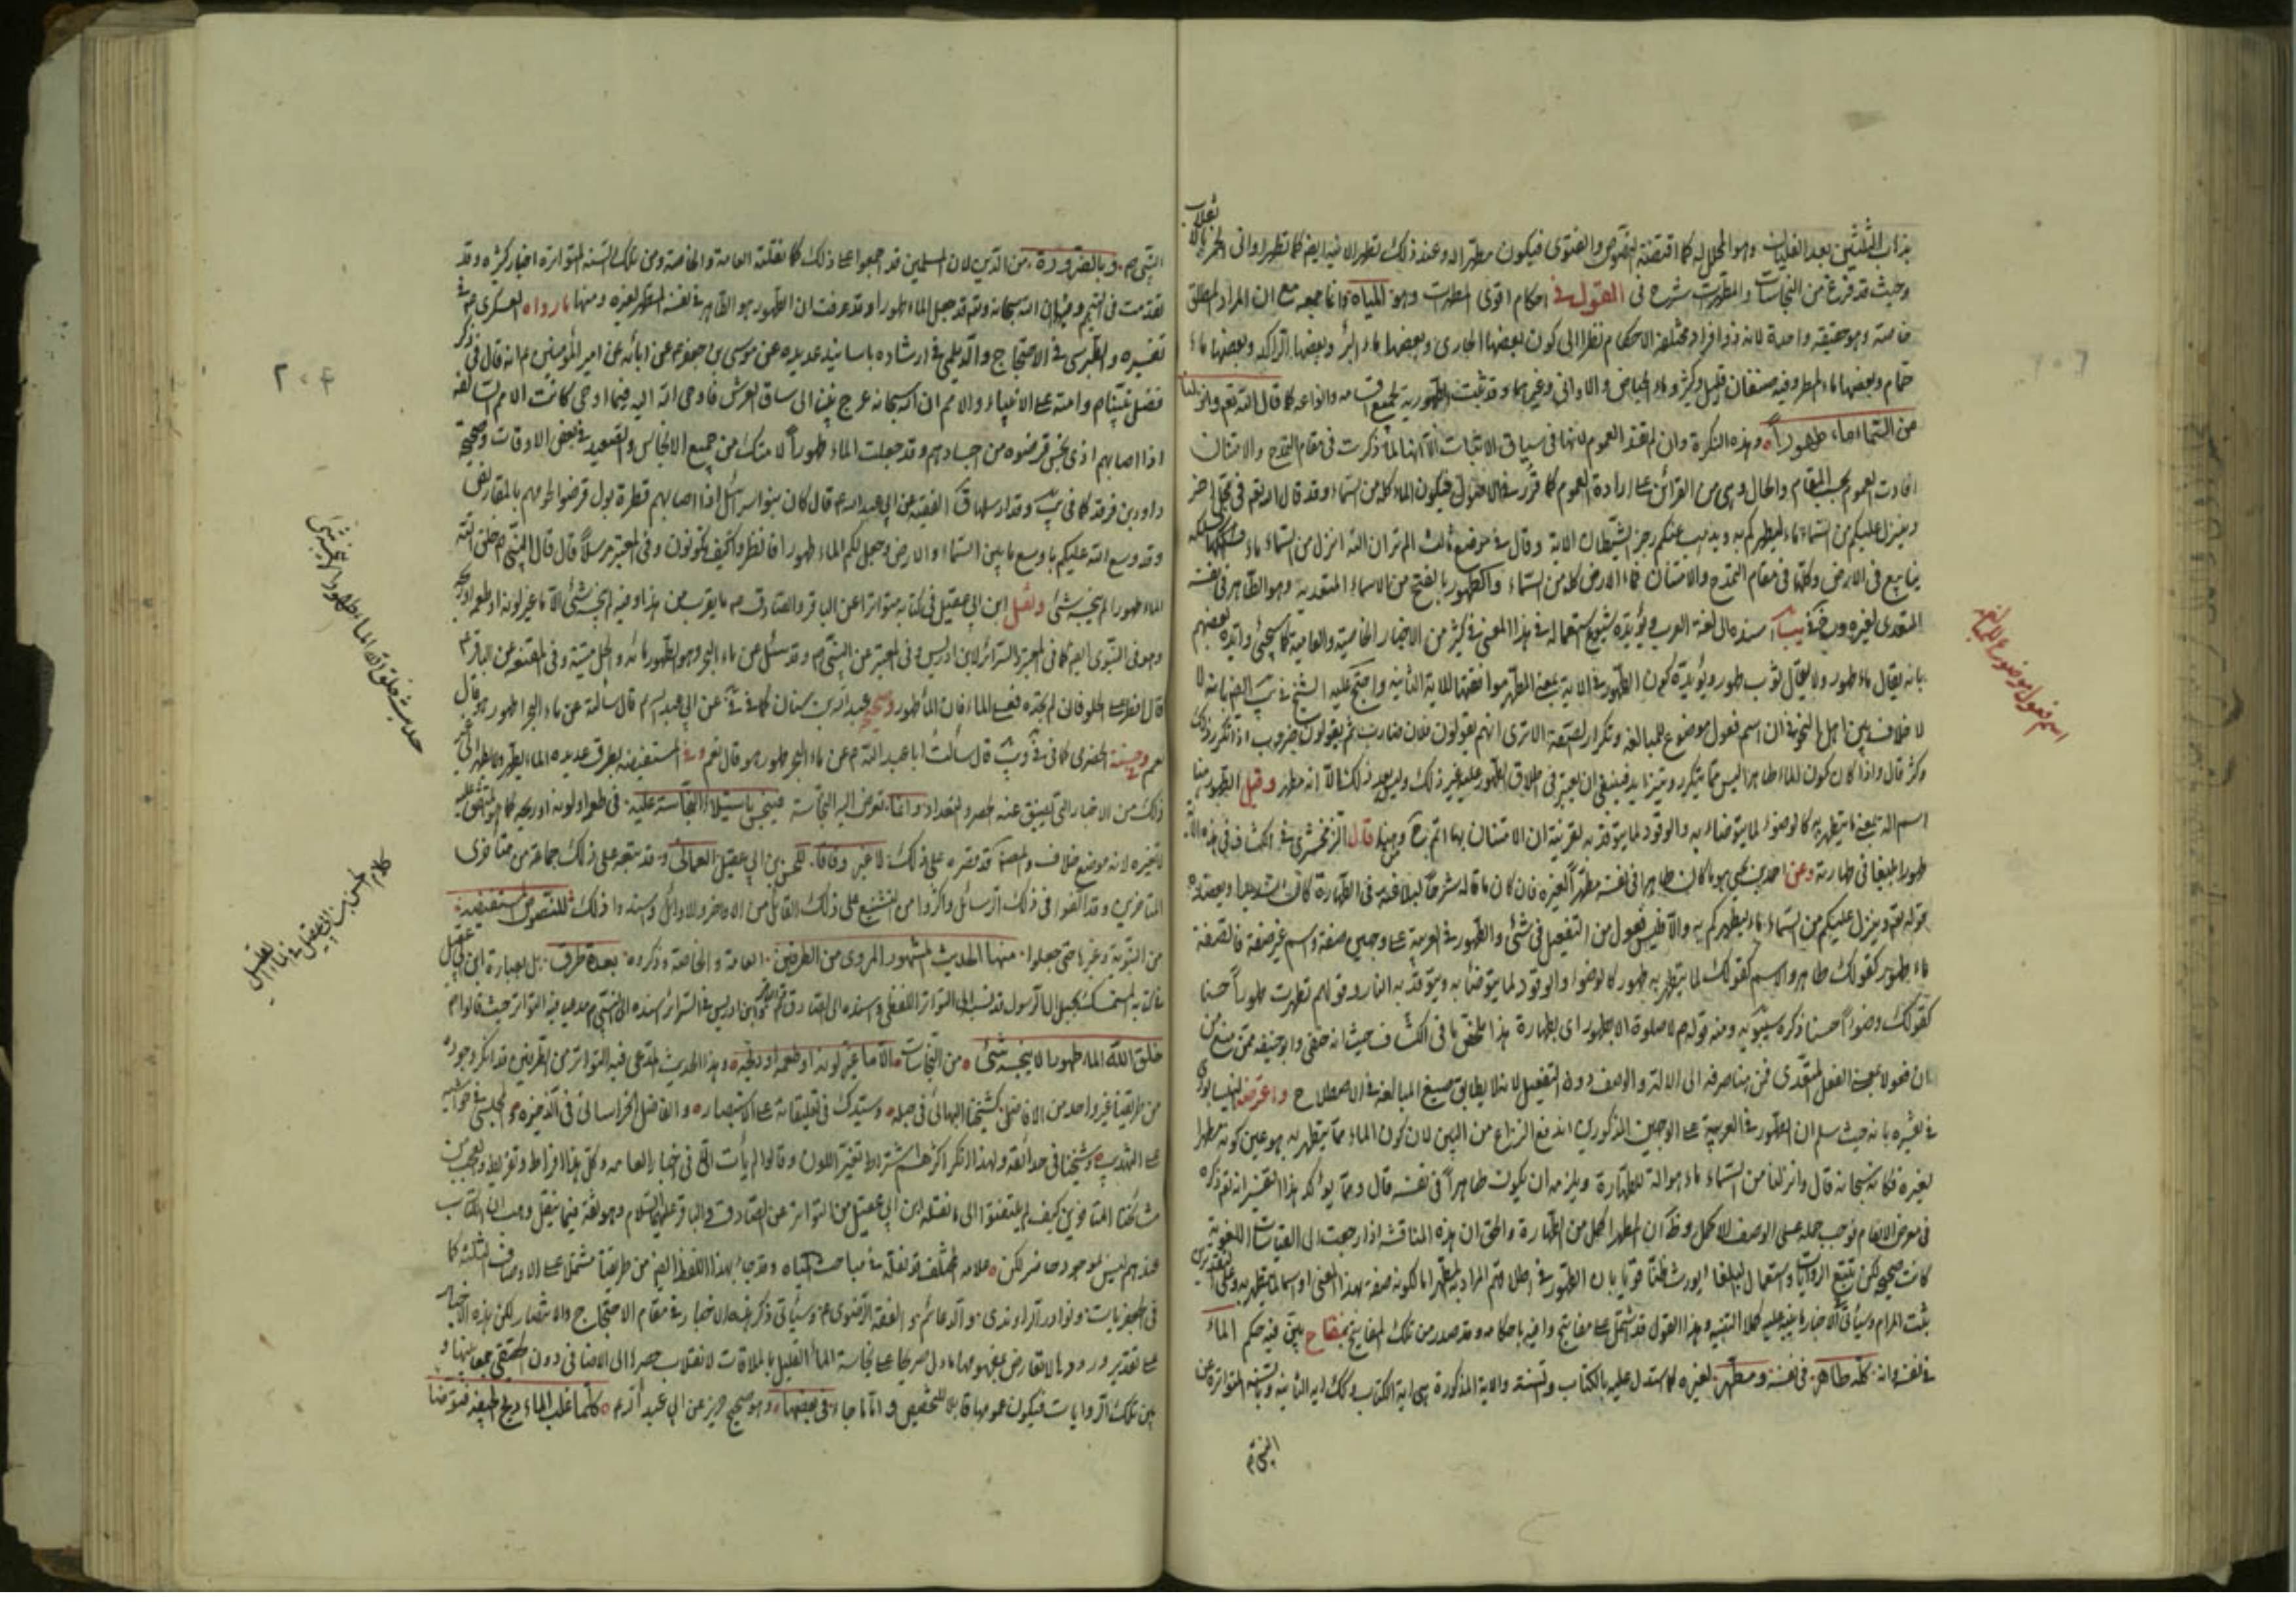 بذهاب الثلثين بعد الغليان وهو المحلل له كما اقتضته النصوص والفتوى فيكون مطهرا له وعند ذلك تطهر الانية ايضا كما تطهر اواني الخمر
وحيث قد فرغ من النجاسات والمطهرات شرح في القول في احكام اقوى المطهرات وهو المياه وانما جمعه مع ان المراد المطلق
خاصة وهو حقيقة واحدة لانه ذو افراد مختلفة الاحكام نظرا الى كون بعضها الجاري وبعضها ماء البئر وبعضها الراكد وبعضها ماء
حمام وبعضها ماء المطر وفيه صنفان قليل وكثير وماء الحياض والاواني وغيرهما وقد ثبتت الطهورية لجميع اقسامه وانواعه كما قال الله تعم وانزلنا
من السماء ماء طهورا وهذه النكرة وان لم تفد العموم لانها في سياق الاثبات الا انها لما ذكرت في مقام التمدح والامتنان
افادت العموم بحسب المقام والحال وهي من القرائن على ارادة العموم كما قرر في الاصول فيكون الماء كله من السماء وقد قال الله تعم في
وينزل عليكم من السماء ماء ليطهركم به ويذهب عنكم رجز الشيطان الاية وقال في موضع ثالث الم تر ان الله انزل من السماء ماء فسلكه
ينابيع في الارض وكلها في مقام التمدح والامتنان فماء الارض كله من السماء والطهور بالفتح من الاسماء المتعدية وهو الطاهر في نفسه
المتعدي لغيره اسنده الى لغة العرب ويؤيده شيوع استعماله في هذا المعنى في كثير من الاخبار الخاصية والعامية كما سيجئ وايده بعضهم
بانه يقال ماء طهور ولا يقال ثوب طهور ويؤيده كون الطهور في الاية بمعنى المطهر موافقتها للاية الثانية واحتج عليه الشيخ في يب ايضا بانه لا
لا خلاف بين اهل النحو في ان اسم فعول موضوع للمبالغة وتكرار الصفة الا ترى انهم يقولون فلان ضارب ثم يقولون ضروب اذا تكرر ذلك
وكثر قال واذا كان كون الماء طاهرا ليس مما يتكرر ويتزايد فينبغي ان يعتبر في اطلاق الطهور عليه غير ذلك وليس بعد ذلك الا انه مطهر وقيل الطهور هنا
اسم اله بمعنى ما يتطهر به كالوضوء لما يتوضاء به والوقود لما يتوقد به بقرينة ان الامتنان بها اتم ح قال الزمخشري في الكشاف في هذه الاية
طهورا بليغا في طهارته وعن احمد بن يحيى هو ما كان طاهرا في نفسه مطهرا لغيره فان كان ما قاله شرحا لبلاغته في الطهارة كان سديدا ويعضده
قوله تعم وينزل عليكم من السماء ماء ليطهركم به والا فليس فعول من التفعيل في شئ والطهور في العربية على وجهين صفة واسم غير صفة فالصفة
ماء طهور كقولك طاهر والاسم كقولك لما يتطهر به طهور كالوضوء والوقود لما يتوضأ به ويتوقد به النار وقولهم تطهرت طهورا حسنا
كقولك وضوءا حسنا ذكره سيبويه ومنه قولهم لا صلوة الا بطهور اي بطهارة هذا ملخص ما في الكشاف حيث انه حنفي وابو حنيفة ممن منع من
ان فعولا بمعنى الفعل المتعدي فمن هنا صرفه الى الالة والوصف دون التفعيل لانه لا يطابق صيغ المبالغة في الاصطلاح واعترضه النيسابوري
في تفسيره بانه حيث سلم ان الطهور في العربية على الوجهين المذكورين اندفع النزاع من البين لان كون الماء مما يتطهر به هو عين كونه مطهرا
لغيره فكانه سبحانه قال وانزلنا من السماء ماء هو الة للطهارة ويلزمه ان يكون طاهرا في نفسه قال ومما يؤكد هذا التفسير انه تعم ذكره
في معرض الانعام فوجب حمله على الوصف الاكمل وظ ان المطهر اكمل من الطهارة والحق ان هذه المناقشة اذا رجعت الى القياسات اللغوية
كانت صحيحة لكن تتبع الروايات واستعمال البلغاء يورث ظنا قويا بان الطهور في اطلاقهم المراد به المطهر اما لكونه صفة بهذا المعنى او اسما لما يتطهر به وعلى التقديرين
يثبت المرام وسيأتي في الاخبار ما ينبه عليه كمال التنبيه وهذا القول قد اشتمل على مفاتيح وافية باحكامه وقد صدر من تلك المفاتيح بمفتاح يبين فيه حكم الماء
في نفسه وانه كله طاهر في نفسه ومطهر لغيره كما استدل عليه بالكتاب والسنة والاية المذكورة هي اية الكتاب وكذلك اية الثانية وبالسنة المتواترة عن
النبي ص
اسم فعول موضوع للمبالغة
النبي ص وبالضرورة من الدين لان المسلمين قد اجمعوا على ذلك كما نقلته العامة والخاصة ومن تلك السنة المتواترة اخبار كثيرة وقد
تقدمت في التيمم وفيها ان الله سبحانه وتعم قد جعل الماء طهورا وقد عرفت ان الطهور هو الطاهر في نفسه المطهر لغيره ومنها ما رواه العسكري ع في
تفسيره والطبرسي في الاحتجاج والديلمي في ارشاده باسانيد عديدة عن موسى بن جعفر ع عن ابائه عن امير المؤمنين ع انه قال في ذكر
فضل نبينا ص وامته على الانبياء والامم ان الله سبحانه عرج بنبينا الى ساق العرش فاوحى الله اليه فيما اوحى كانت الامم السالفة
اذا اصابهم اذى نجس قرضوه من اجسادهم وقد جعلت الماء طهورا لامتك من جميع الانجاس والصعيد في بعض الاوقات وصحيح
داود بن فرقد كما في يب الفقيه عن ابي عبد الله ع قال كان بنو اسرائيل اذا اصابهم قطرة بول قرضوا لحومهم بالمقاريض
وقد وسع الله عليكم باوسع ما بين السماء والارض وجعل لكم الماء طهورا فانظروا كيف تكونون وفي المعتبر مرسلا قال قال النبي ص خلق الله
الماء طهورا لم ينجسه شئ ونقل ابن ابي عقيل في كتابه متواترا عن الباقر والصادق ع ما يقرب من هذا وفيه لم ينجسه شئ الا ما غير لونه او طعمه او ريحه
وهو في النبوي ايضا كما في المعتبر والسرائر لابن ادريس وفي المعتبر عن النبي ص وقد سئل عن ماء البحر وهو الطهور مائه والحل ميتته وفي المقنعة عن الباقر ع
قال افطر على الحلو فان لم تجده فعلى الماء فان الماء طهور وصحيح عبد الله بن سنان كما في عن ابي عبد الله ع قال سألته عن ماء البحر اطهور هو قال
نعم وحسنة الحضرمي كما في قال سألت ابا عبد الله ع عن ماء البحر طهور هو قال نعم وفي المستفيضة بطرق عديدة الماء يطهر ولا يطهر الى غير
ذلك من الاخبار التي يضيق عنه الحصر والتعداد وانما تعرض اليه النجاسة فينجس باستيلاء النجاسة عليه في طعم او لون او ريح كما هو المتفق عليه
لتغيره لانه موضع خلاف والمصنف قد قصره على ذلك لا غير وفاقا للحسن بن ابي عقيل العماني وقد تبعه على ذلك جماعة من متاخري
المتاخرين وقد الفوا في ذلك الرسائل واكثروا من التشنيع على ذلك القائل من الاواخر والاوائل واسند ذلك للنصوص المستفيضة
من النبوية وغيرها حتى جعلوا منها الحديث المشهور المروي من الطرفين العامة والخاصة وذكروه بعدة طرق بل بعبارة ابن ابي عقيل
في كتابه المتمسك بحبل ال الرسول قد نسب الى التواتر اللفظي واسنده الى الصادق وابن ادريس في السرائر اسنده الى النبي ص مدعيا فيه التواتر حيث قالوا ع
خلق الله الماء طهورا لا ينجسه شئ من النجاسات الا ما غير لونه او طعمه او ريحه وهذا الحديث المدعى فيه التواتر من الطرفين قد انكر وجوده
من طريقنا غير واحد من الافاضل كشيخنا البهائي في حبله وسيدك في تعليقاته على الاستبصار والفاضل الخراساني في الذخيرة والمجلسي في حواشيه
على التهذيب وشيخنا في حدائقه ولهذا انكر اكثرهم اشتراط تغير اللون وقالوا لم يأت الا في اخبار العامة وكل هذا افراط وتفريط والعجب من
مشائخنا المتاخرين كيف لم يلتفتوا الى ما نقله ابن ابي عقيل من التواتر عن الصادق والباقر عليهما السلام وهو ثقة فيما ينقل وهب ان الكتاب
عندهم ليس موجودا حاضرا لكن علامة المختلف قد نقله في مباحث المياه وقد جاء بهذا اللفظ ايضا من طريقنا مشتملا على الاوصاف الثلثة كما
في الجعفريات ونوادر الراوندي والدعائم والفقه الرضوي وسيأتي ذكر هذه الاخبار في مقام الاحتجاج والانتصار لكن هذه الاخبار
على تقدير ورودها لا تعارض بمفهومها ما دل صريحا على نجاسة الماء القليل بالملاقات لانقلاب حصرها الى الاضافي دون الحقيقي جمعا بينها و
بين تلك الروايات فيكون عمومها قابلا للتخصيص وانما جاء في بعضها وهو صحيح حريز عن ابي عبد الله ع كلما غلب الماء ريح الجيفة فتوضأ
حديث خلق الله الماء طهورا لم ينجسه شئ
كلام الحسن بن ابي عقيل في الماء القليل